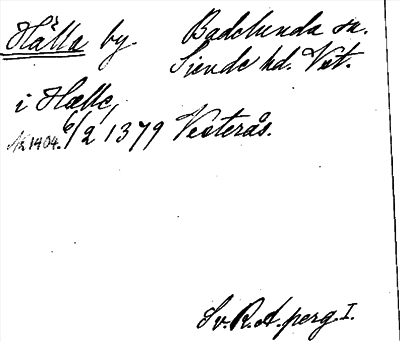 Hälla by. Badelunda sn.
Siende hd. Vst.
i Hælle,
N 1404. 6/2 1379 Vesterås.
Sv. R. A. perg I.